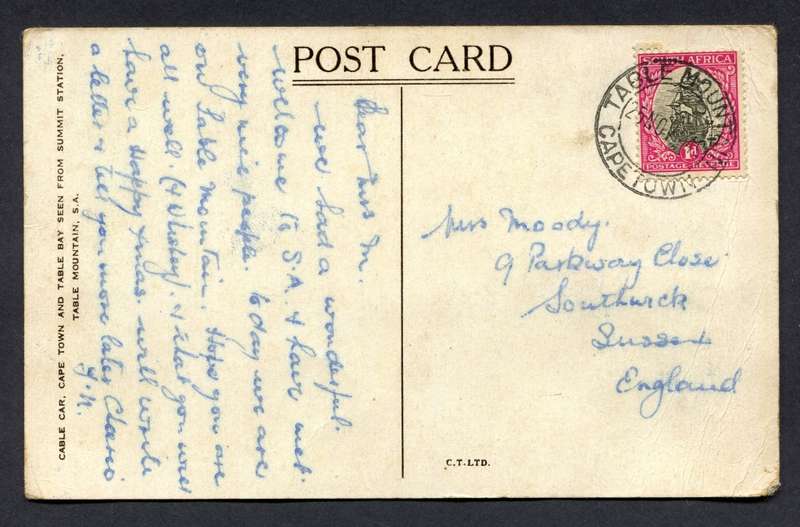 POST CARD
CABLE CAR, CAPE TOWN AND TABLE BAY SEEN FROM SUMMIT STATION,
TABLE MOUNTAIN, S.A.
Dear Mrs M.
we had a wonderful
welcome to S.A. & have met
very nice people. today we are
on Table Mountain. Hope you are
all well. (& Whiskey). & that you will
have a Happy Xmas will write
a letter & tell you more later
S. AFRICA
1d
POSTAGE REVENUE
TABLE MOUNTAIN
CAPETOWN
Mrs Moody.
9 Parkway Close
Southwick
Sussex
England
C.T. LTD.